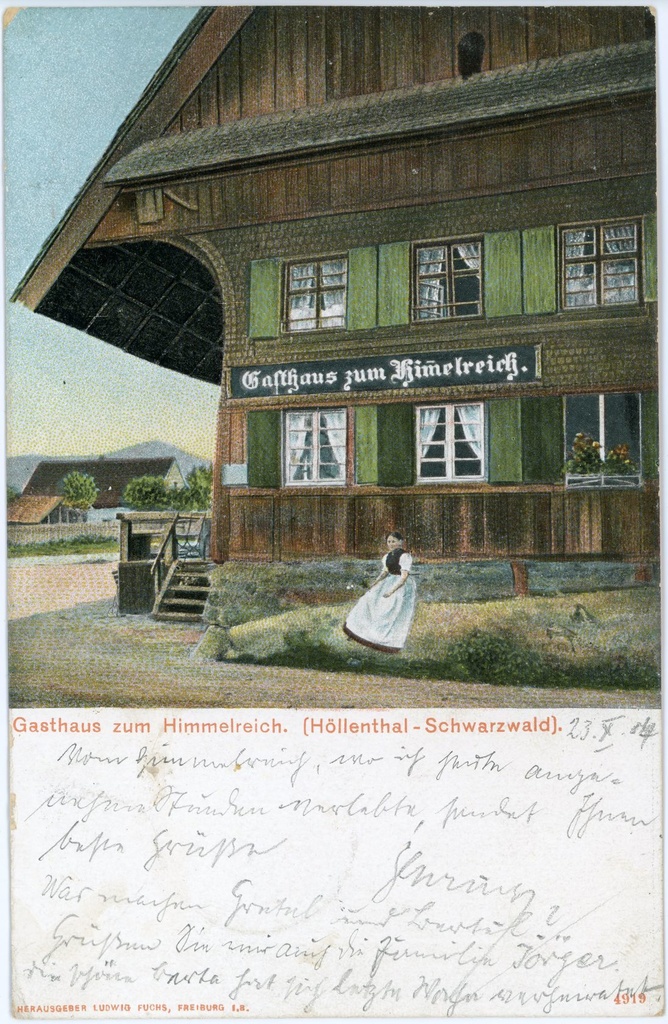 Gasthaus zum Him̄elreich.
Gasthaus zum Himmelreich. (Höllenthal-Schwarzwald).
23. X. 04
Vom Himmelreich, wo ich heute ange-
nehme Stunden verlebte, sendet Ihnen
beste Grüße
Was machen Gretel und Bertel?
Grüßen Sie mir auch die Familie Jörger.
die schöne Berta hat sich letzte Woche verheiratet.
HERAUSGEBER LUDWIG FUCHS, FREIBURG I.B.
4919